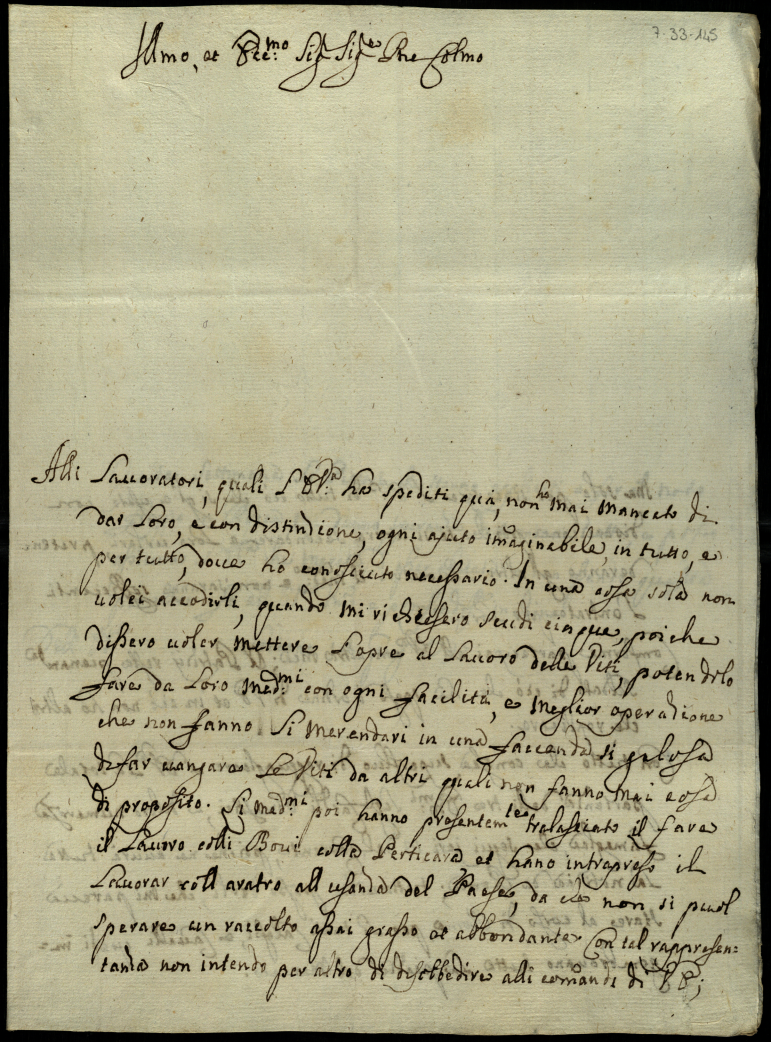 7-33-145
Illmo, et Ecc:mo Sig Sig:e Pne Colmo
Alli Lauoratori, quali S E V:ra ha spediti qua, non ho mai mancato di
dar Loro, e con distinzione, ogni ajuto imaginabile, in tutto, e
per tutto, doue ho conosciuto necessario. In una cosa sola non
uolei accodirli, quando mi richiesero scudi cinque, poiche
dissero uoler mettere L'opre al Lauoro delle Viti, potendolo
fare da Loro med:mi con ogni facilità, e meglior operazione
che non fanno Si merendari in una faccenda si gelosa
di far uangare Le Viti da altri quali non fanno mai cosa
di proposito. Li med:mi poi hanno presentem:te tralasciato il fare
il Lauoro colli Boui colla Perticara et hano intrapreso il
Lauorar coll aratro all usanza del Paese, da che non si puol
sperare un raccolto assai grasso et abbondante Con tal rappresen=
tanza non intendo per altro di disobbedire alli comandi di V E;